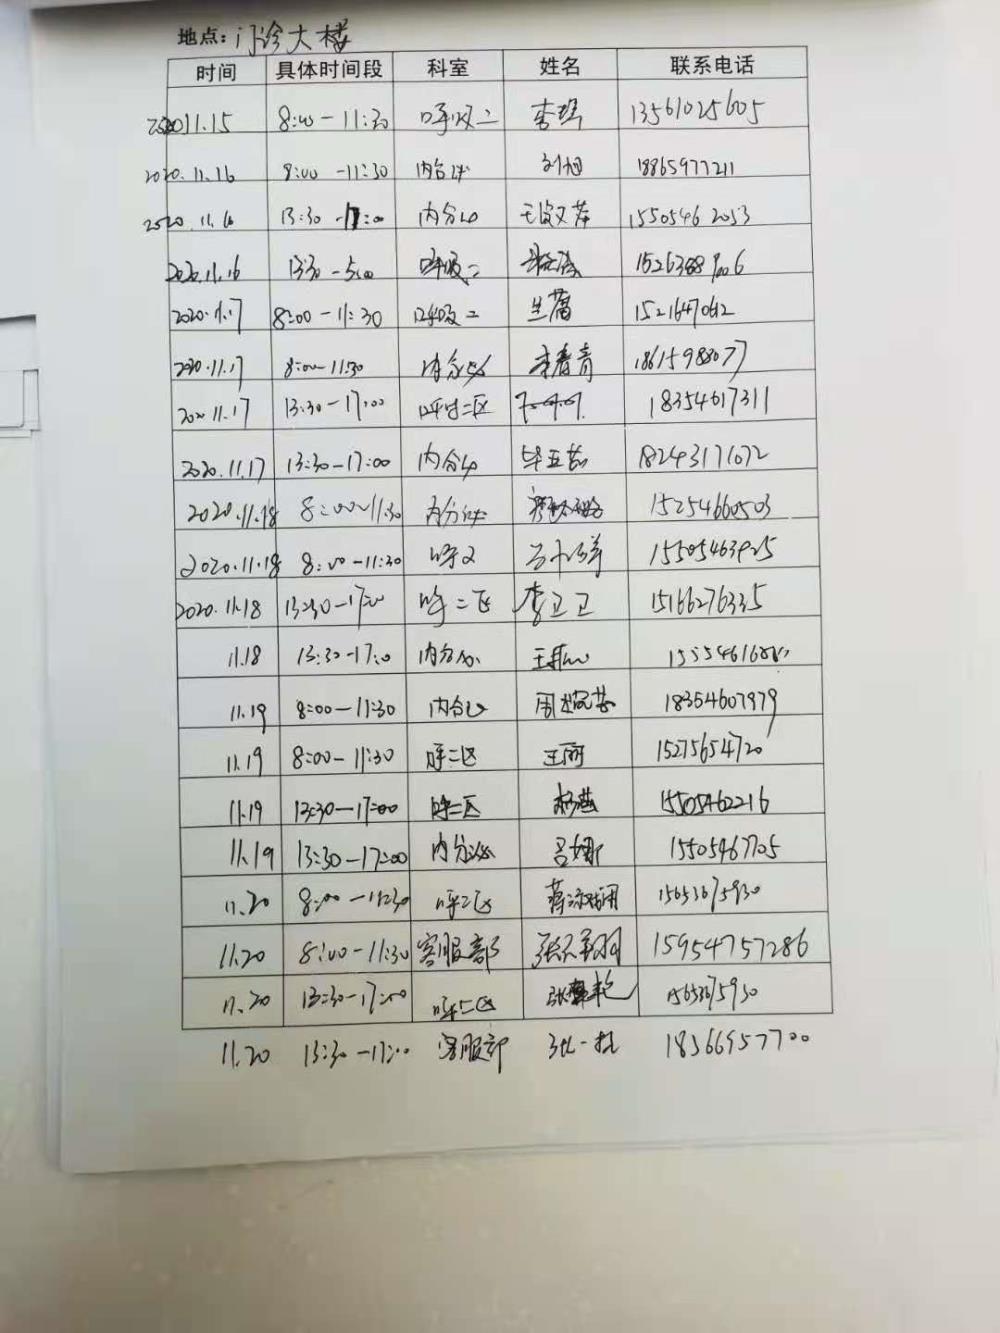 地点：门诊大楼
时间 具体时间段 科室 姓名 联系电话
202011.15 8:00-11:30 呼吸二 李瑶 13561025605
2020.11.16 8:00-11:30 内分泌 刘旭 18865977211
2020.11.16 13:30-17:00 内分泌 1550546 2053
2020.11.16 13:30-5:00 呼吸二
2020.11.17 8:00-11:30 呼吸二 1521647062
2020.11.17 8:00-11:30 内分泌 李春青 18615988077
2020 11.17 13:30-17:00 呼吸二区 18354617311
2020.11.17 13:30-17:00 内分泌 18243171072
2020.11.18 8:00~11:30 内分泌 15254660503
2020.11.18 8:00-11:30 呼2 15505463925
2020.11.18 13:30-17:00 呼二区 李卫卫 15166276335
11.18 13:30-17:00 内分泌
11.19 8:00-11:30 内分泌 18354607979
11.19 8:00-11:30 呼二区 王丽 15275654720
11.19 13:30-17:00 呼二区 杨燕 15505462216
11.19 13:30-17:00 内分泌 吕娜 15505467705
11.20 8:00-11:30 呼二区 15653675930
11.20 8:00-11:30 客服部 15954757286
11.20 13:30-17:00 呼二区 15653675930
11.20 13:30-17:00 客服部 18566957700